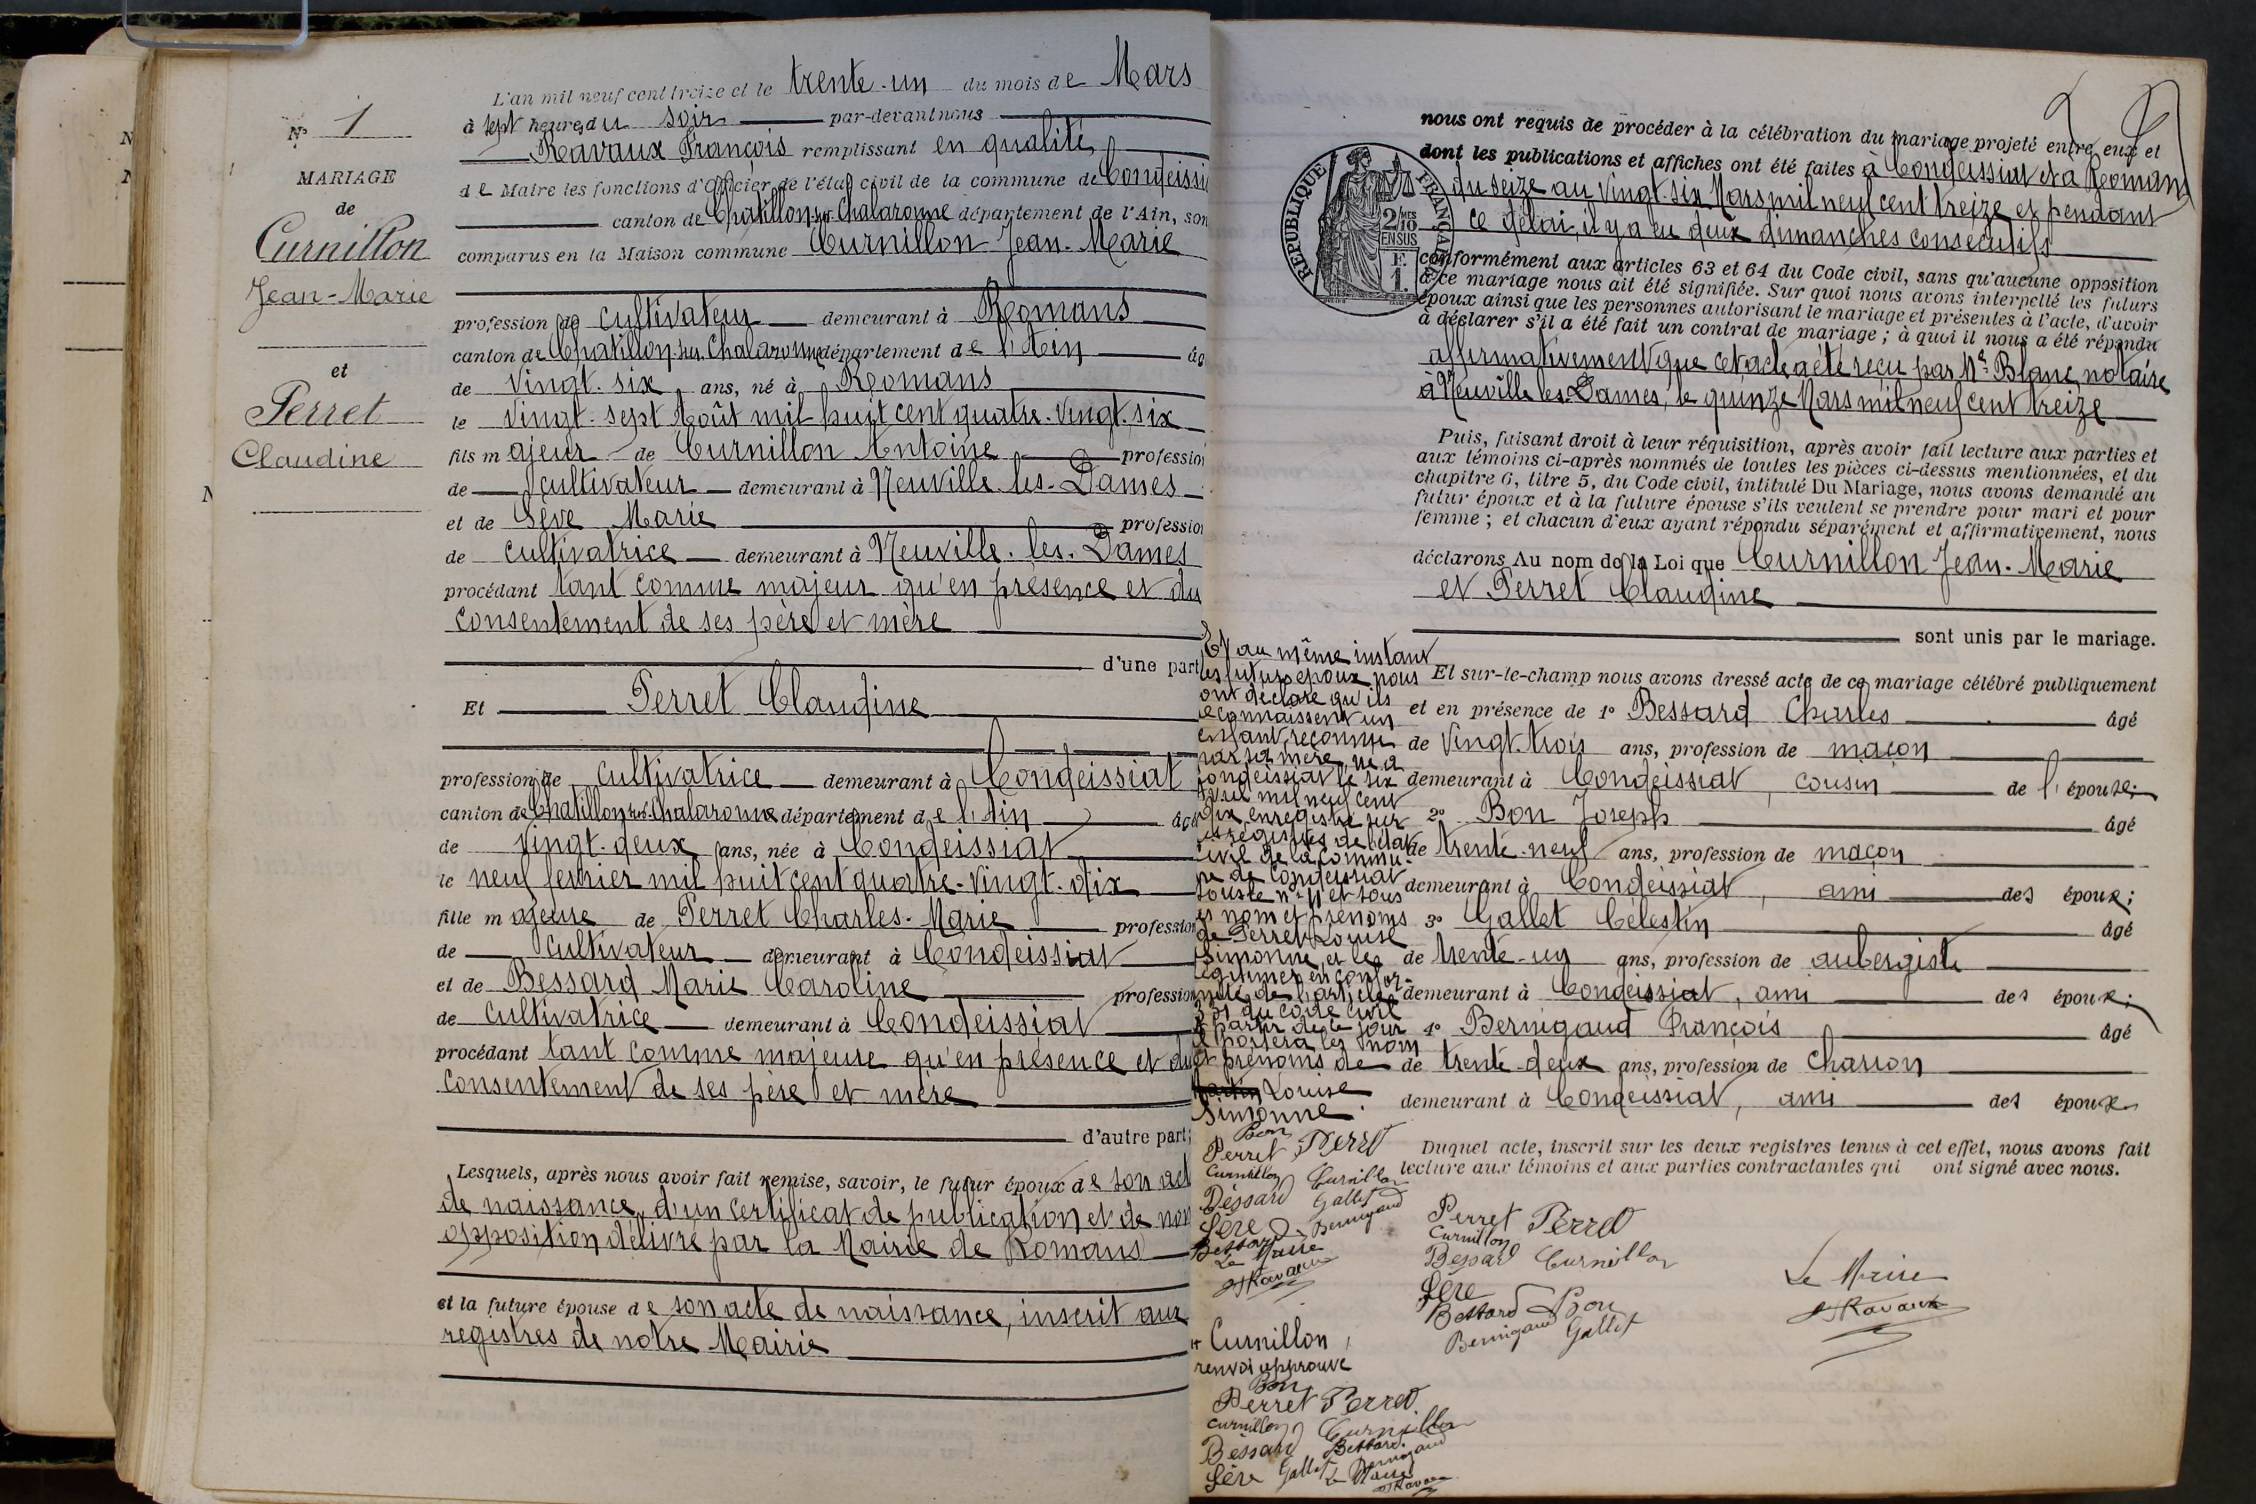 N° 1
MARIAGE
de
Curnillon
Jean-Marie
et
Perret
Claudine
L'an mil neuf cent treize et le trente-un du mois de Mars
à sept heures du soir par-devant nous
Ravaux François remplissant en qualité
de Maire les fonctions d'officier de l'état civil de la commune de Condeissi
canton de Châtillon-sur-Chalaronne département de l'Ain, son
comparus en la Maison commune Curnillon Jean-Marie
profession de cultivateur demeurant à Romans
canton de Chatillon-sur-Chalaronne département de l'Ain âg
de vingt-six ans, né à Romans
le vingt-sept Août mil huit cent quatre-vingt-six
fils majeur de Curnillon Antoine profession
de cultivateur demeurant à Neuville-les-Dames
et de Sève Marie profession
de cultivatrice demeurant à Neuville-les-Dames
procédant tant comme majeur qu'en présence et du
consentement de ses père et mère
d'une part
Et Perret Claudine
profession de cultivatrice demeurant à Condeissiat
canton de Chatillon-sur-Chalaronne département de l'Ain âgé
de vingt-deux ans, née à Condeissiat
le neuf février mil huit cent quatre-vingt-dix
fille majeure de Perret Charles-Marie profession
de cultivateur demeurant à Condeissiat
et de Bessard Marie Caroline profession
de cultivatrice demeurant à Condeissiat
procédant tant comme majeure qu'en présence et du
consentement de ses père et mère
d'autre part;
Lesquels, après nous avoir fait remise, savoir, le futur époux de son act
de naissance, d'un certificat de publication et de non
opposition délivré par la Mairie de Romans
et la future épouse de son acte de naissance, inscrit aux
registres de notre Mairie
2
nous ont requis de procéder à la célébration du mariage projeté entre eux et
dont les publications et affiches ont été faites à Condeissiat et à Romans
du seize au vingt-six Mars mil neuf cent treize et pendant
ce délai, il y a eu deux dimanches consécutifs
RÉPUBLIQUE FRANÇAISE
2/10 MES
EN SUS
F.
1.
conformément aux articles 63 et 64 du Code civil, sans qu'aucune opposition
à ce mariage nous ait été signifiée. Sur quoi nous avons interpellé les futurs
époux ainsi que les personnes autorisant le mariage et présentes à l'acte, d'avoir
à déclarer s'il a été fait un contrat de mariage; à quoi il nous a été répondu
affirmativement que cet acte a été reçu par Me Blanc, notaire
à Neuville-les-Dames, le quinze Mars mil neuf cent treize
Puis, faisant droit à leur réquisition, après avoir fait lecture aux parties et
aux témoins ci-après nommés de toutes les pièces ci-dessus mentionnées, et du
chapitre 6, titre 5, du Code civil, intitulé Du Mariage, nous avons demandé au
futur époux et à la future épouse s'ils veulent se prendre pour mari et pour
femme; et chacun d'eux ayant répondu séparément et affirmativement, nous
déclarons Au nom de la Loi que Curnillon Jean-Marie
et Perret Claudine
sont unis par le mariage.
Et sur-le-champ nous avons dressé acte de ce mariage célébré publiquement
et en présence de 1° Bessard Charles âgé
de vingt-trois ans, profession de maçon
demeurant à Condeissiat, cousin de l'épouse;
2° Bon Joseph âgé
de trente-neuf ans, profession de maçon
demeurant à Condeissiat, ami des époux;
3° Gallet Célestin âgé
de trente-un ans, profession de aubergiste
demeurant à Condeissiat, ami des époux;
4° Bernigaud François âgé
de trente-deux ans, profession de charron
demeurant à Condeissiat, ami des époux
Duquel acte, inscrit sur les deux registres tenus à cet effet, nous avons fait
lecture aux témoins et aux parties contractantes qui ont signé avec nous.
Perret Perret
Curnillon
Bessard Curnillon
Sève
Bessard Bon
Bernigaud Gallet
Le Maire
Ravaux
Et au même instant
les futurs époux nous
ont déclaré qu'ils
reconnaissent un
enfant, reconnu
par sa mère, né à
Condeissiat le six
Avril mil neuf cent
dix enregistré sur
les registres de l'état
civil de la commu-
ne de Condeissiat
sous le n° 11 et sous
les nom et prénoms
de Perret Louise
Simonne, et le
légitimer en confor-
mité de l'article
331 du code civil
à partir de ce jour
il portera les nom
et prénoms de
Louise
Simonne.
Bon
Perret Perret
Curnillon Curnillon
Bessard Gallet
Sève Bernigaud
Bessard
Le Maire
Ravaux
Curnillon
renvoi approuvé
Bon
Perret Perret
Curnillon Curnillon
Bessard Bessard
Sève Gallet Bernigaud
Le Maire
Ravaux